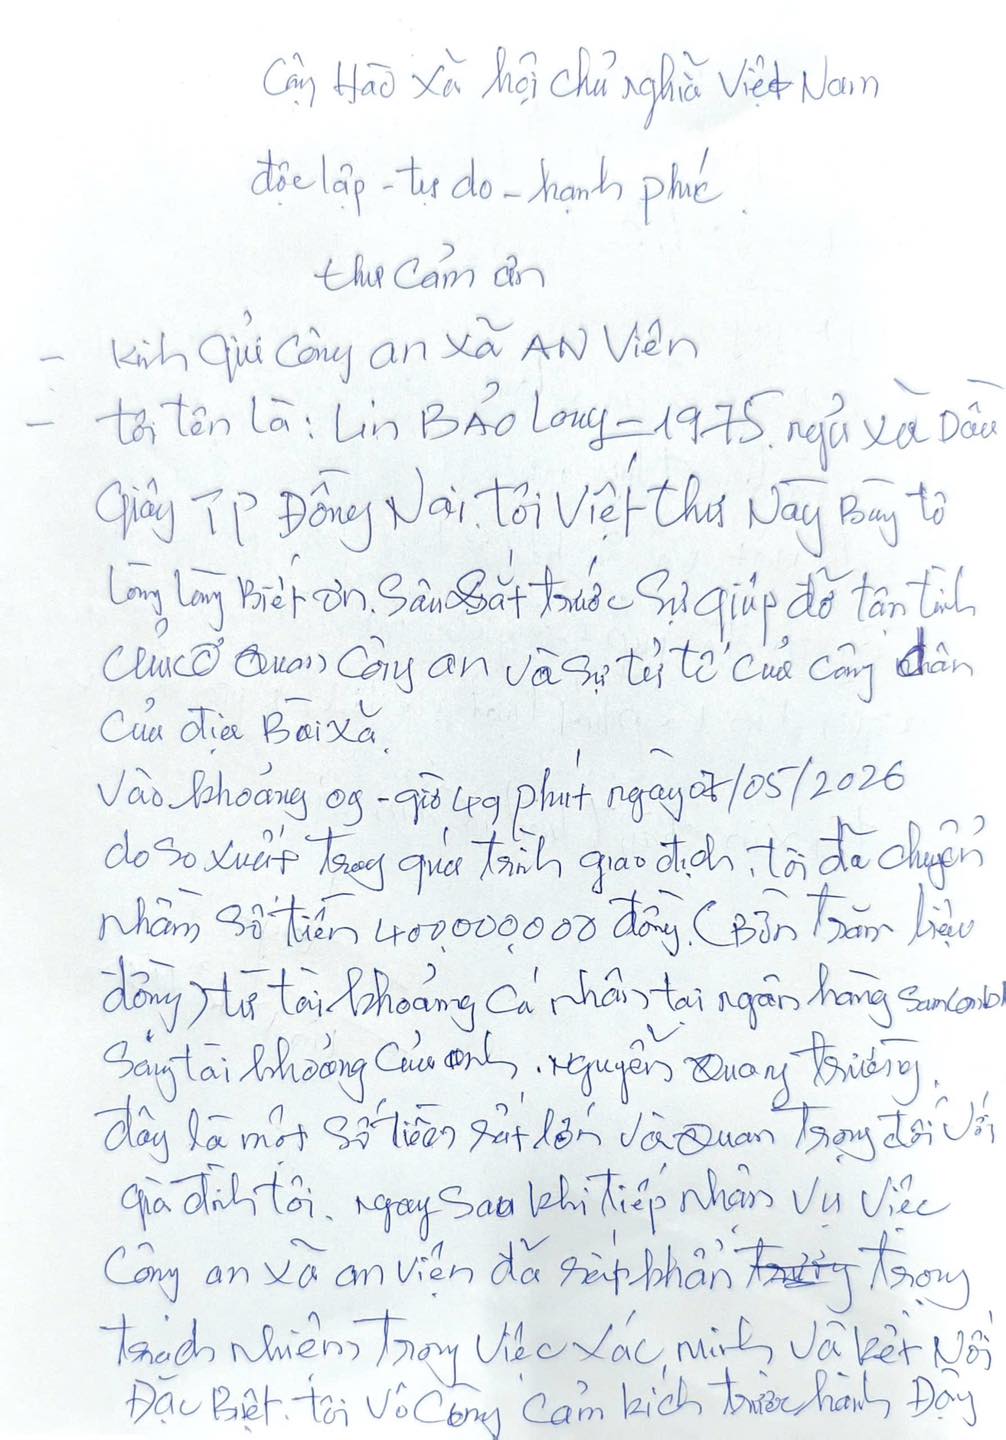 Cộng Hào xã hội chủ nghĩa Việt Nam
độc lập - tự do - hạnh phúc.
thư cảm ơn
- Kính Gủi Công an xã AN Viên
- tôi tên là: Lin BẢO Long = 1975. ngủ xã Dầu
Giây TP ĐỒng Nai. tôi Viết thư Này Bày tỏ
lòng lòng Biết ơn. Sâu Sắt trước Sự giúp đỡ tận tình
của cơ Quan Công an và sự tử tế của công dân
của địa Bài xã.
vào khoảng 09 - giờ 49 phút ngày 07/05/2026
do so xuất trong quá trình giao dịch. tôi đã chuyển
nhầm số tiền 400,000,000 đồng. (Bốn trăm triệu
đồng) từ tài khoảng cá nhân tại ngân hàng
sang tài khoảng của anh. Nguyễn Quang trường.
đây là một số tiền rất lớn và Quan trọng đối với
già đình tôi. ngay sau khi tiếp nhận vụ việc
Công an xã an viên đã rất khẩn trọng
trách nhiệm trong việc xác, minh và kết Nối
Đặc Biệt. tôi vô Cùng cảm kích trước hành Động